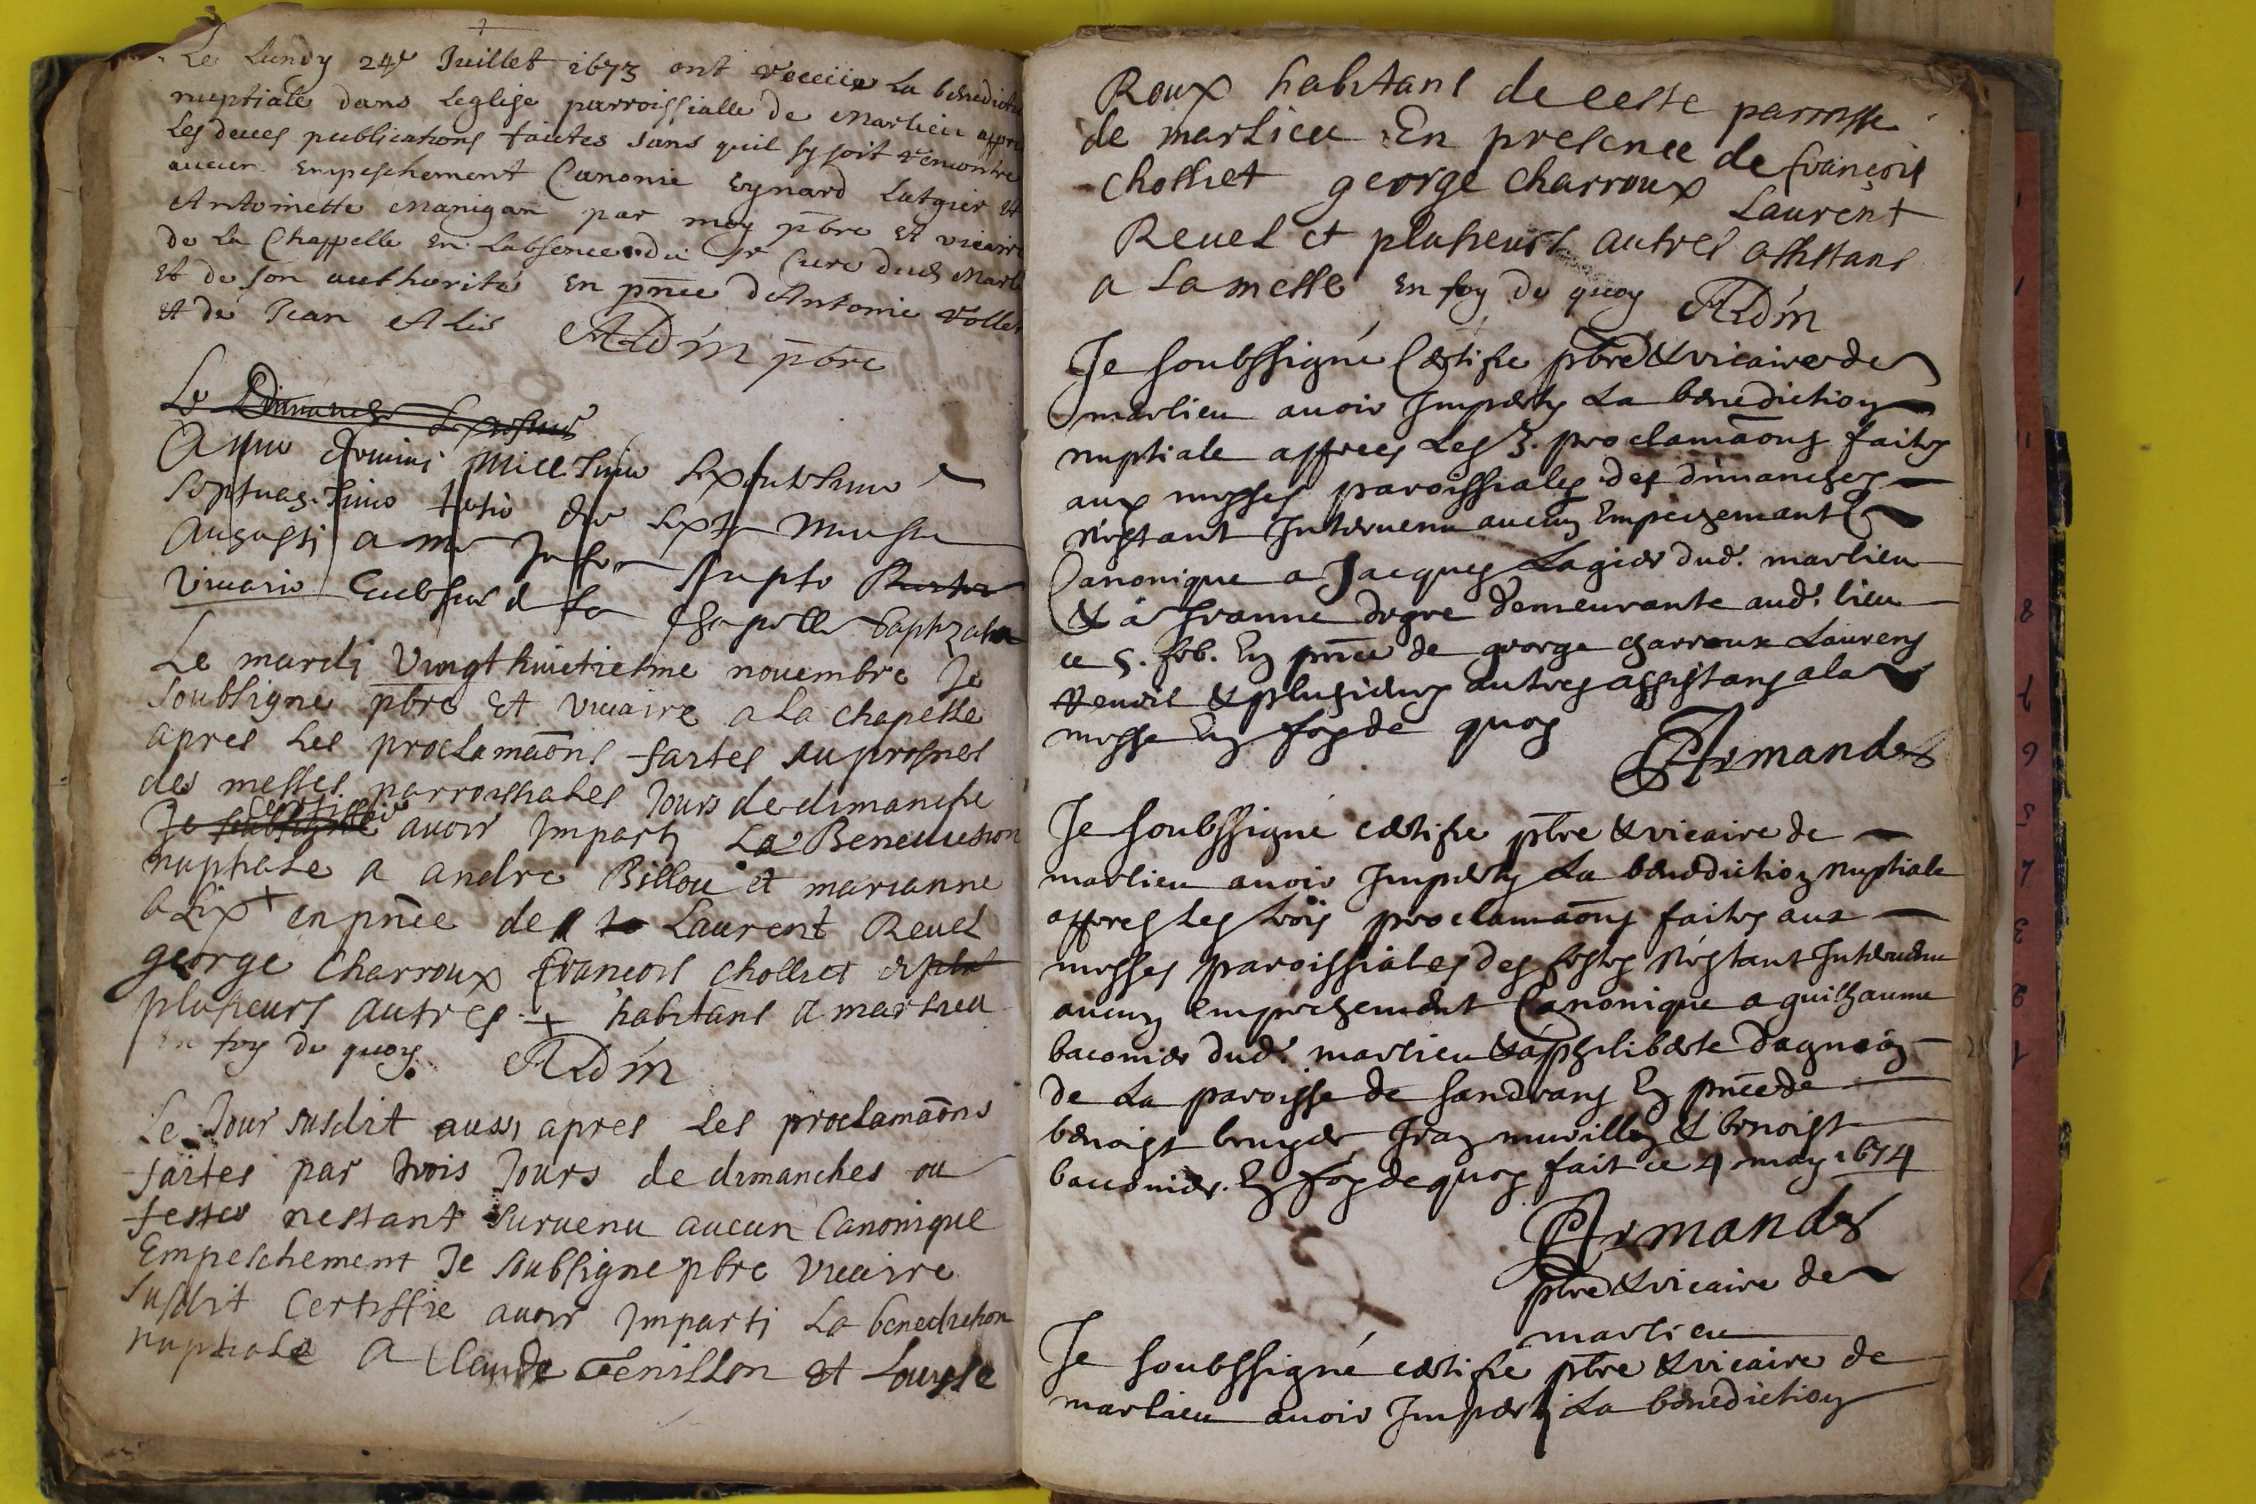 Le Lundy 24e Juillet 1673 ont receüe La benedicti
nuptiale dans Leglise parroissialle de Marlieu appre
Les deues publications faictes sans quil sy soit rencontre
aucun empeschement Canonic Eynard Latgier et
Antoinette Manigan par moy pbre et vicaire
de La Chappelle en Labsence du Sr Cure dud Marl
et de son authorité en pnce d'Antoine Vollet
et de Jean Alis ADm pbre
Le Dimanche
Anno domini millesimo sexcentesimo
septuagesimo tertio die sexta mensis
Augusti a me infra scripto
Vicario la Chapelle baptizatus
Le mardi vingt huictiesme novembre Je
soubsigne pbre et vicaire a la chapelle
apres les proclamaons faites au prosnes
des messes parroissiales Jours de dimanche
Je soubsigne certiffie avoir Imparti La Benediction
nuptiale a andre Billou et marianne
alix + en pnce de Laurent Revel
george Charroux françois Cholliet et plu
plusieurs autres + habitans a marlieu
en foy de quoy. ADm
Le Jour susdit aussi apres les proclamaons
faites par trois Jours de dimanches ou
festes nestant survenu aucun Canonique
Empeschement Je soubsigne pbre vicaire
susdit Certiffie avoir Imparti La benediction
nuptiale a Claude Tenillon et Louyse
Roux habitans de ceste parroisse
de marlieu En presence de françois
Cholliet george Charroux Laurent
Revel et plusieurs autres assistans
a La messe en foy de quoy ADm
Je soubssigné Certifie pbre & vicaire de
marlieu avoir Imparty La benediction
nuptiale appres Les 3. proclamaons faites
aux messes paroissiales des dimanches
n'estant Intervenu aucun Empechemant
Canonique a Jacques Lagier dud. marlieu
& à Jeanne degre demeurante aud. lieu
ce 5. feb. En pnce de george charroux Laurens
Revoil & plusieurs autres assistans a la
messe En foy de quoy
Armandes
Je soubssigné certifie pbre & vicaire de
marlieu avoir Imparty La benediction nuptiale
appres Les trois proclamaons faites aux
messes paroissiales des festes N'estant Intervenu
aucun empechement Canonique a guilhaume
baconier dud. marlieu & à philiberte dagnon
de La paroisse de sandrans En pnce de
benoist bruyer Jean murillon & benoist
baconier. En foy de quoy fait ce 4 may 1674
Armandes
pbre & vicaire de
marlieu
Je soubssigné certifie pbre & vicaire de
marlieu avoir Imparty La benediction